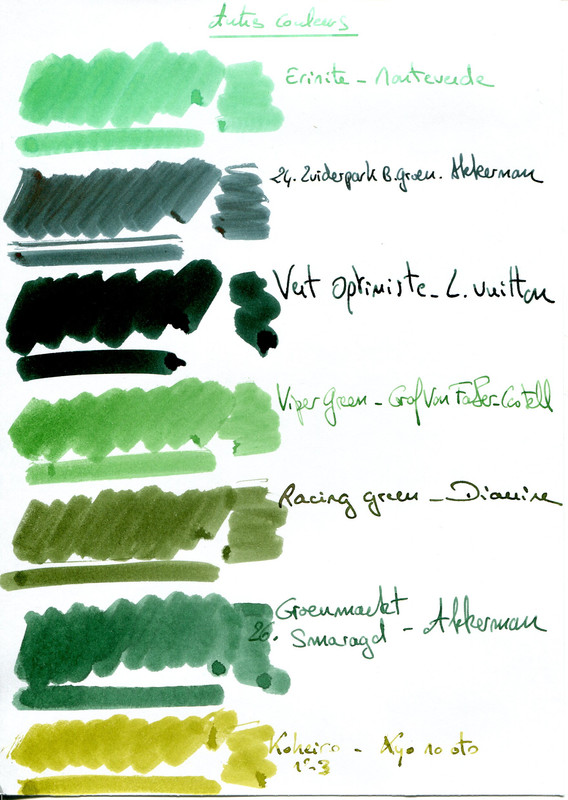 Autres couleurs
Erinite - Monteverde
24. Zuiderpark B.groen. Akkerman
Vert Optimiste - L. Vuitton
Viper Green - Graf Von Faber-Castell
Racing green - Diamine
Groenmarkt
26. Smaragd - Akkerman
Koheiro - Kyo no oto
n°3